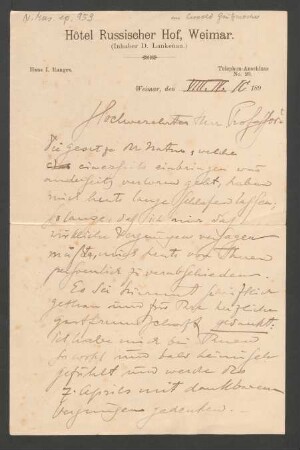 N. Mus. ep. 959
Hôtel Russischer Hof, Weimar.
(Inhaber D. Lankenau.)
Haus I. Ranges.
Telephon-Anschluss
Weimar, den 189
Hochverehrter Herr Professor!
Die Gesetze der Natur, welche
einerseits einbringen was
anderseits verloren geht, haben
mich heute lange schlafen lassen,
so lange, daß ich mir das
wirkliche Vergnügen versagen
mußte, mich heute von Ihnen
persönlich zu verabschieden.
Es sei hiermit
gethan und für Ihre herzliche
Gastfreundschaft gedankt.
Ich habe mich bei Ihnen
so wohl und heimisch
gefühlt und werde des
7. Aprils mit dankbarem
Vergnügen gedenken. —